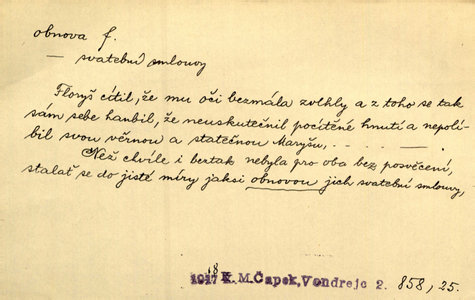 obnova f.
— svatební smlouvy
Floryš cítil, že mu oči bezmála zvlhly a z toho se tak
sám sebe hanbil, že neuskutečnil pocítěné hnutí a nepolí-
bil svou věrnou a statečnou Maryšu, . . . . — . . . .
Než chvíle i bertak nebyla pro oba bez posvěcení,
stalať se do jisté míry jaksi obnovou jich svatební smlouvy,
1917 18 K. M. Čapek, Vondrejc 2. 858, 25.